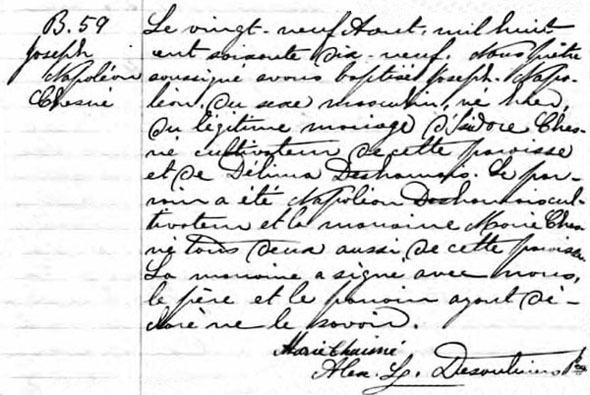 B. 59
Joseph
Napoléon
Chesné
Le vingt-neuf Aout, mil huit
cent soixante dix-neuf, Nous prêtre
soussigné avons baptisé Joseph-Napo-
léon, du sexe masculin, né hier,
du légitime mariage d'Isidore Ches-
né cultivateur de cette paroisse
et de Délima Deshamais. Le par-
rain a été Napoléon Deshamais cul-
tivateur et la marraine Marie Ches-
né tous deux aussi de cette paroisse.
La marraine a signé avec nous,
le père et le parrain ayant dé-
claré ne le savoir.
Marie Chainé
Alex. L. Desoulniers Ptre